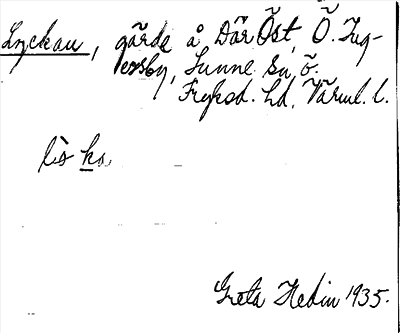 Lyckau, gärde å Där Öst, Ö. Ing-
ersby, Sunne sn, ö.
Fryksd. hd, Värml. l.
lìs ka
Greta Hedin 1935.